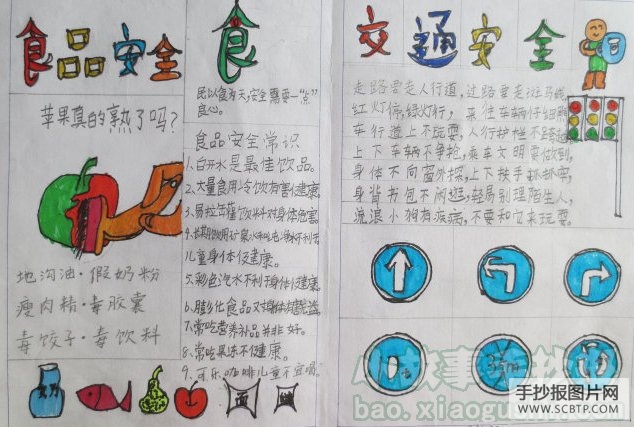 食品安全
苹果真的熟了吗?
地沟油·假奶粉
瘦肉精·毒胶囊
毒饺子·毒饮料
食
民以食为天,安全需要一“点”
良心。
食品安全常识
1、白开水是最佳饮品。
2、大量食用冷饮有害健康
3、易拉缶馐饮料对身体危害
儿童身体仅健康。
5、彩色汽水不利于身体仅健康
6、膨化食品又对身体有害
7、常吃营养补品并非好。
8、常吃果冻不健康。
9、可乐、咖啡儿童不宜喝
面
交通安全
走路要走人行道,过路要走斑马线
红灯停,绿灯行,来往车辆仔细瞧
车行道上不玩耍,人行护栏不跨越
上下车辆不争抢,乘车文明要做到,
身体不向窗外探,上下扶手抓抓牢,
身背书包不闲逛,轻易别理陌生人,
流浪小狗有疾病,不要和它来玩耍。
手抄报图片网
WWW.SCBTP.COM